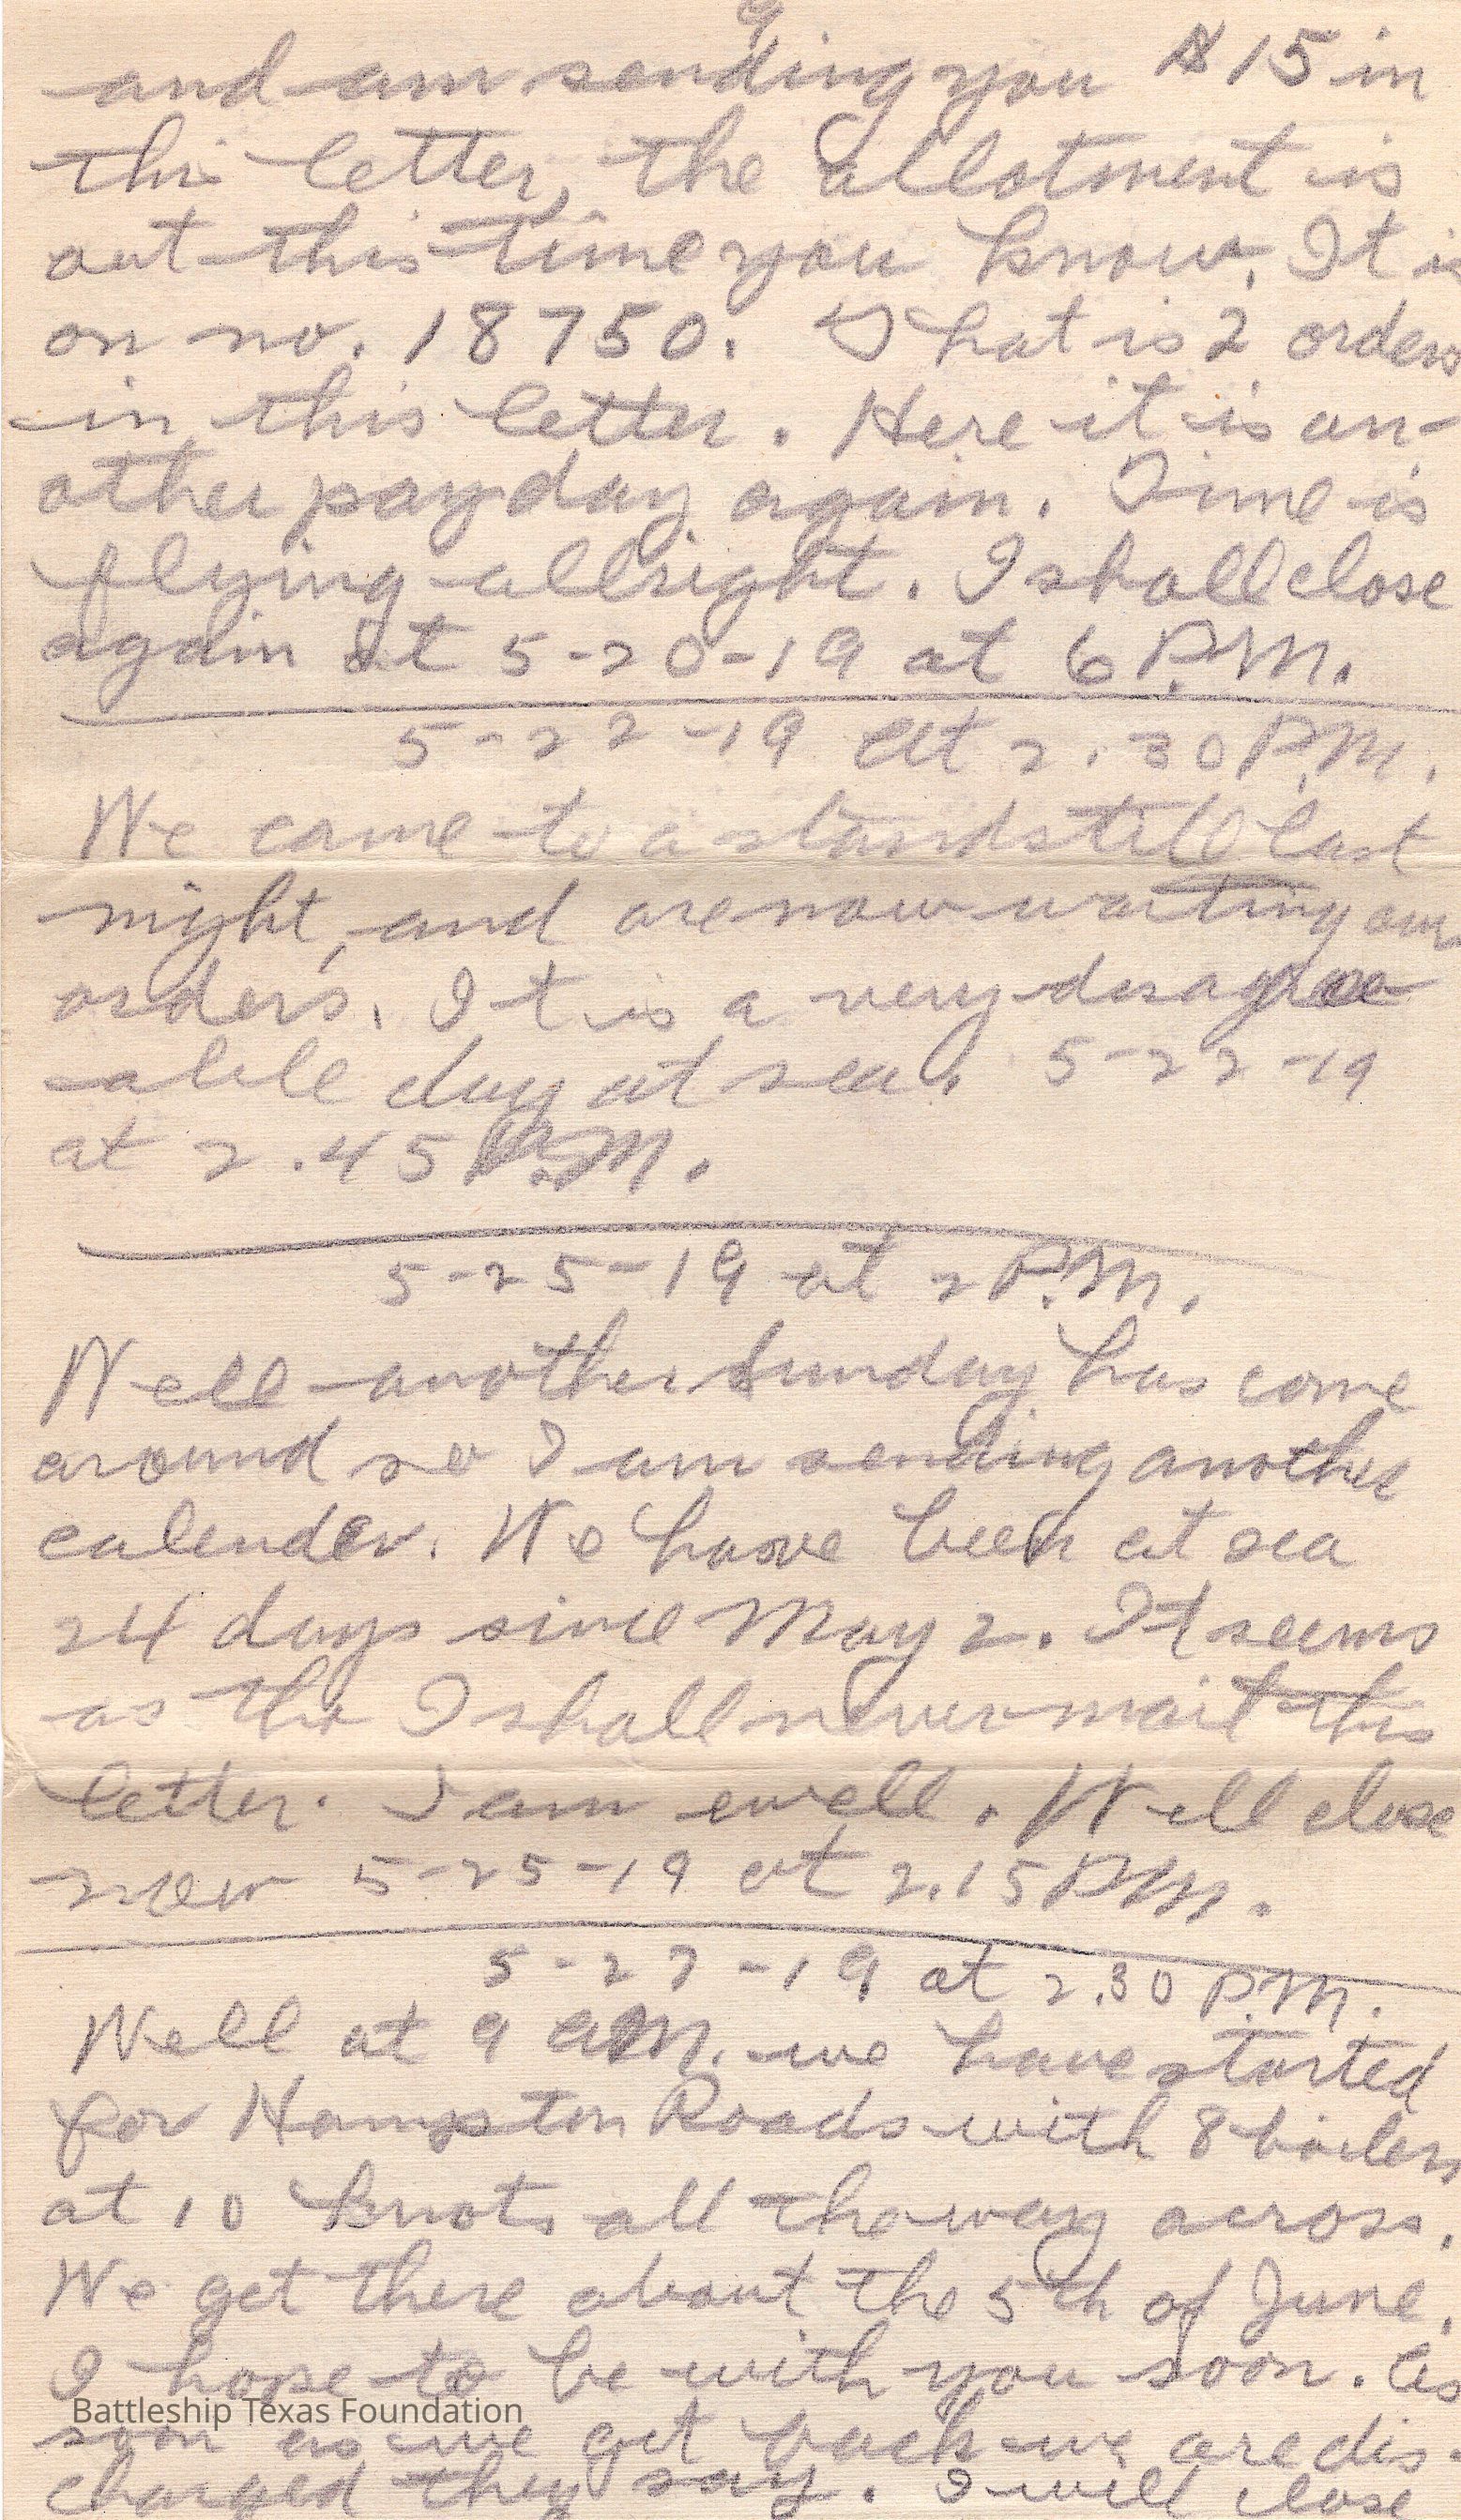 9
and am sending you $15 in
this letter, the allotment is
out this time you know. It is
on no. 18750. That is 2 orders
in this letter. Here it is an-
other payday again. Time is
flying allright. I shall close
again at 5-20-19 at 6 P.M.
5-22-19 at 2.30 P.M.
We came to a standstill last
night, and are now waiting our
orders. It is a very disagree
able day at sea. 5-22-19
at 2.45 P.M.
5-25-19 at 2 P.M.
Well another Sunday has come
around so I am sending another
calender. We have been at sea
24 days since May 2. It seems
as tho I shall never mail this
letter. I am well. Well close
now 5-25-19 at 2.15 P.M.
5-27-19 at 2.30 P.M.
Well at 9 A.M. we have started
for Hampton Roads with 8 boilers
at 10 knots all the way across.
We get there about the 5th of June.
I hope to be with you soon. As
Battleship Texas Foundation
soon as we get back we are dis-
charged they say. I will close